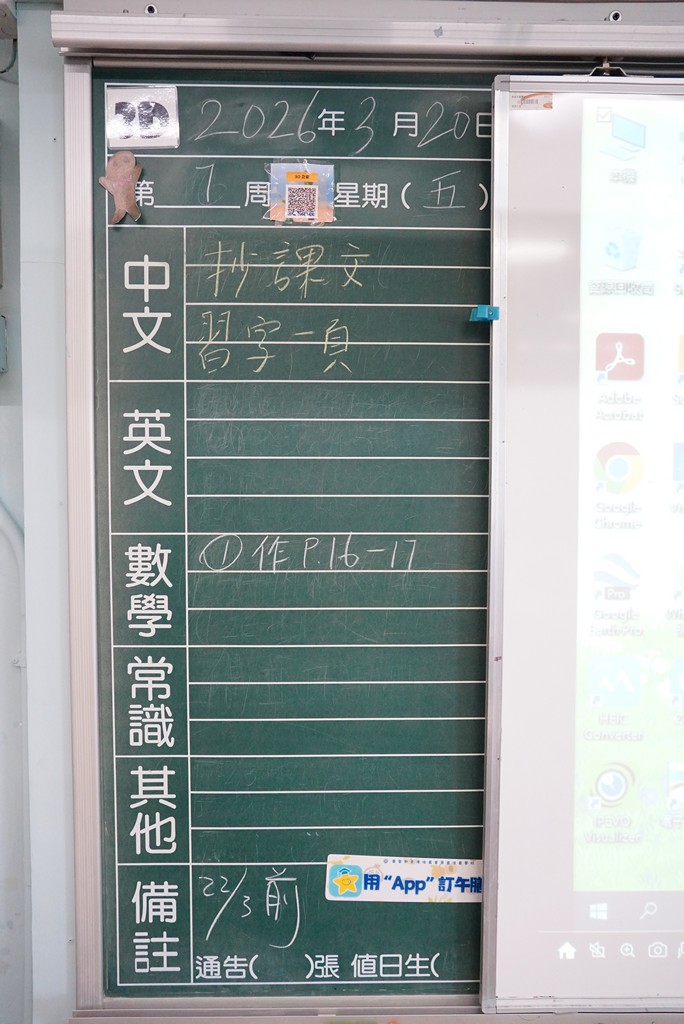 3D 2026年3月20日
第 7 周 星期(五)
中文
抄課文
習字一頁
英文
數學
①作 P.16-17
常識
其他
備註
22/3前
用“App”訂午膳
通告( )張 值日生(
Adobe
Acrobat
Google
Chrome
Pro
Google
Earth Pro
HEIC
Converter
IPEVO
Visualizer